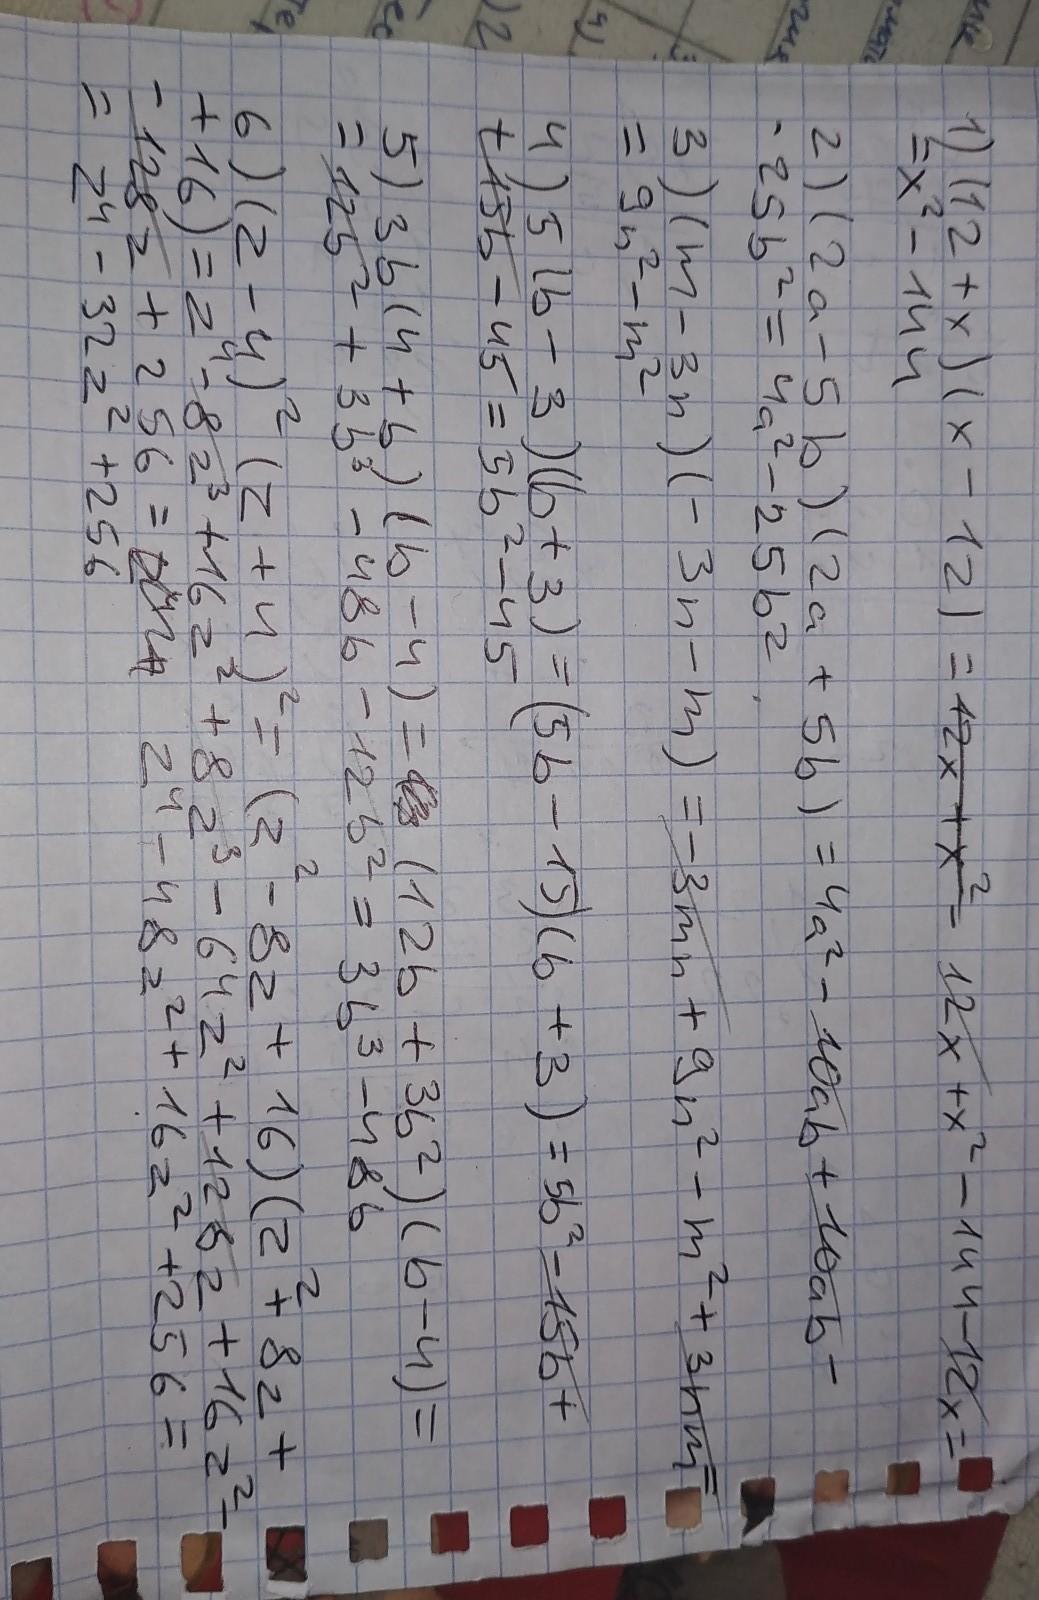 1) (12 + x) (x - 12) = 12x + x² = 12x + x² - 144 - 12x =
= x² - 144
2) (2a - 5b) (2a + 5b) = 4a² - 10ab + 10ab -
- 25b² = 4a² - 25b².
3) (m - 3n) (- 3n - m) = - 3mn + 9n² - m² + 3nm =
= 9n² - m²
4) 5 (b - 3) (b + 3) = (5b - 15) (b + 3) = 5b² - 15b +
+ 15b - 45 = 5b² - 45
5) 3b (4 + b) (b - 4) = (12b + 3b²) (b - 4) =
= 12b² + 3b³ - 48b - 12b² = 3b³ - 48b
6) (z - 4)² (z + 4)² = (z² - 8z + 16) (z² + 8z +
+ 16) = z⁴ - 8z³ + 16z² + 8z³ - 64z² + 128z + 16z² -
- 128z + 256 = z⁴ - 48z² + 16z² + 256 =
= z⁴ - 32z² + 256